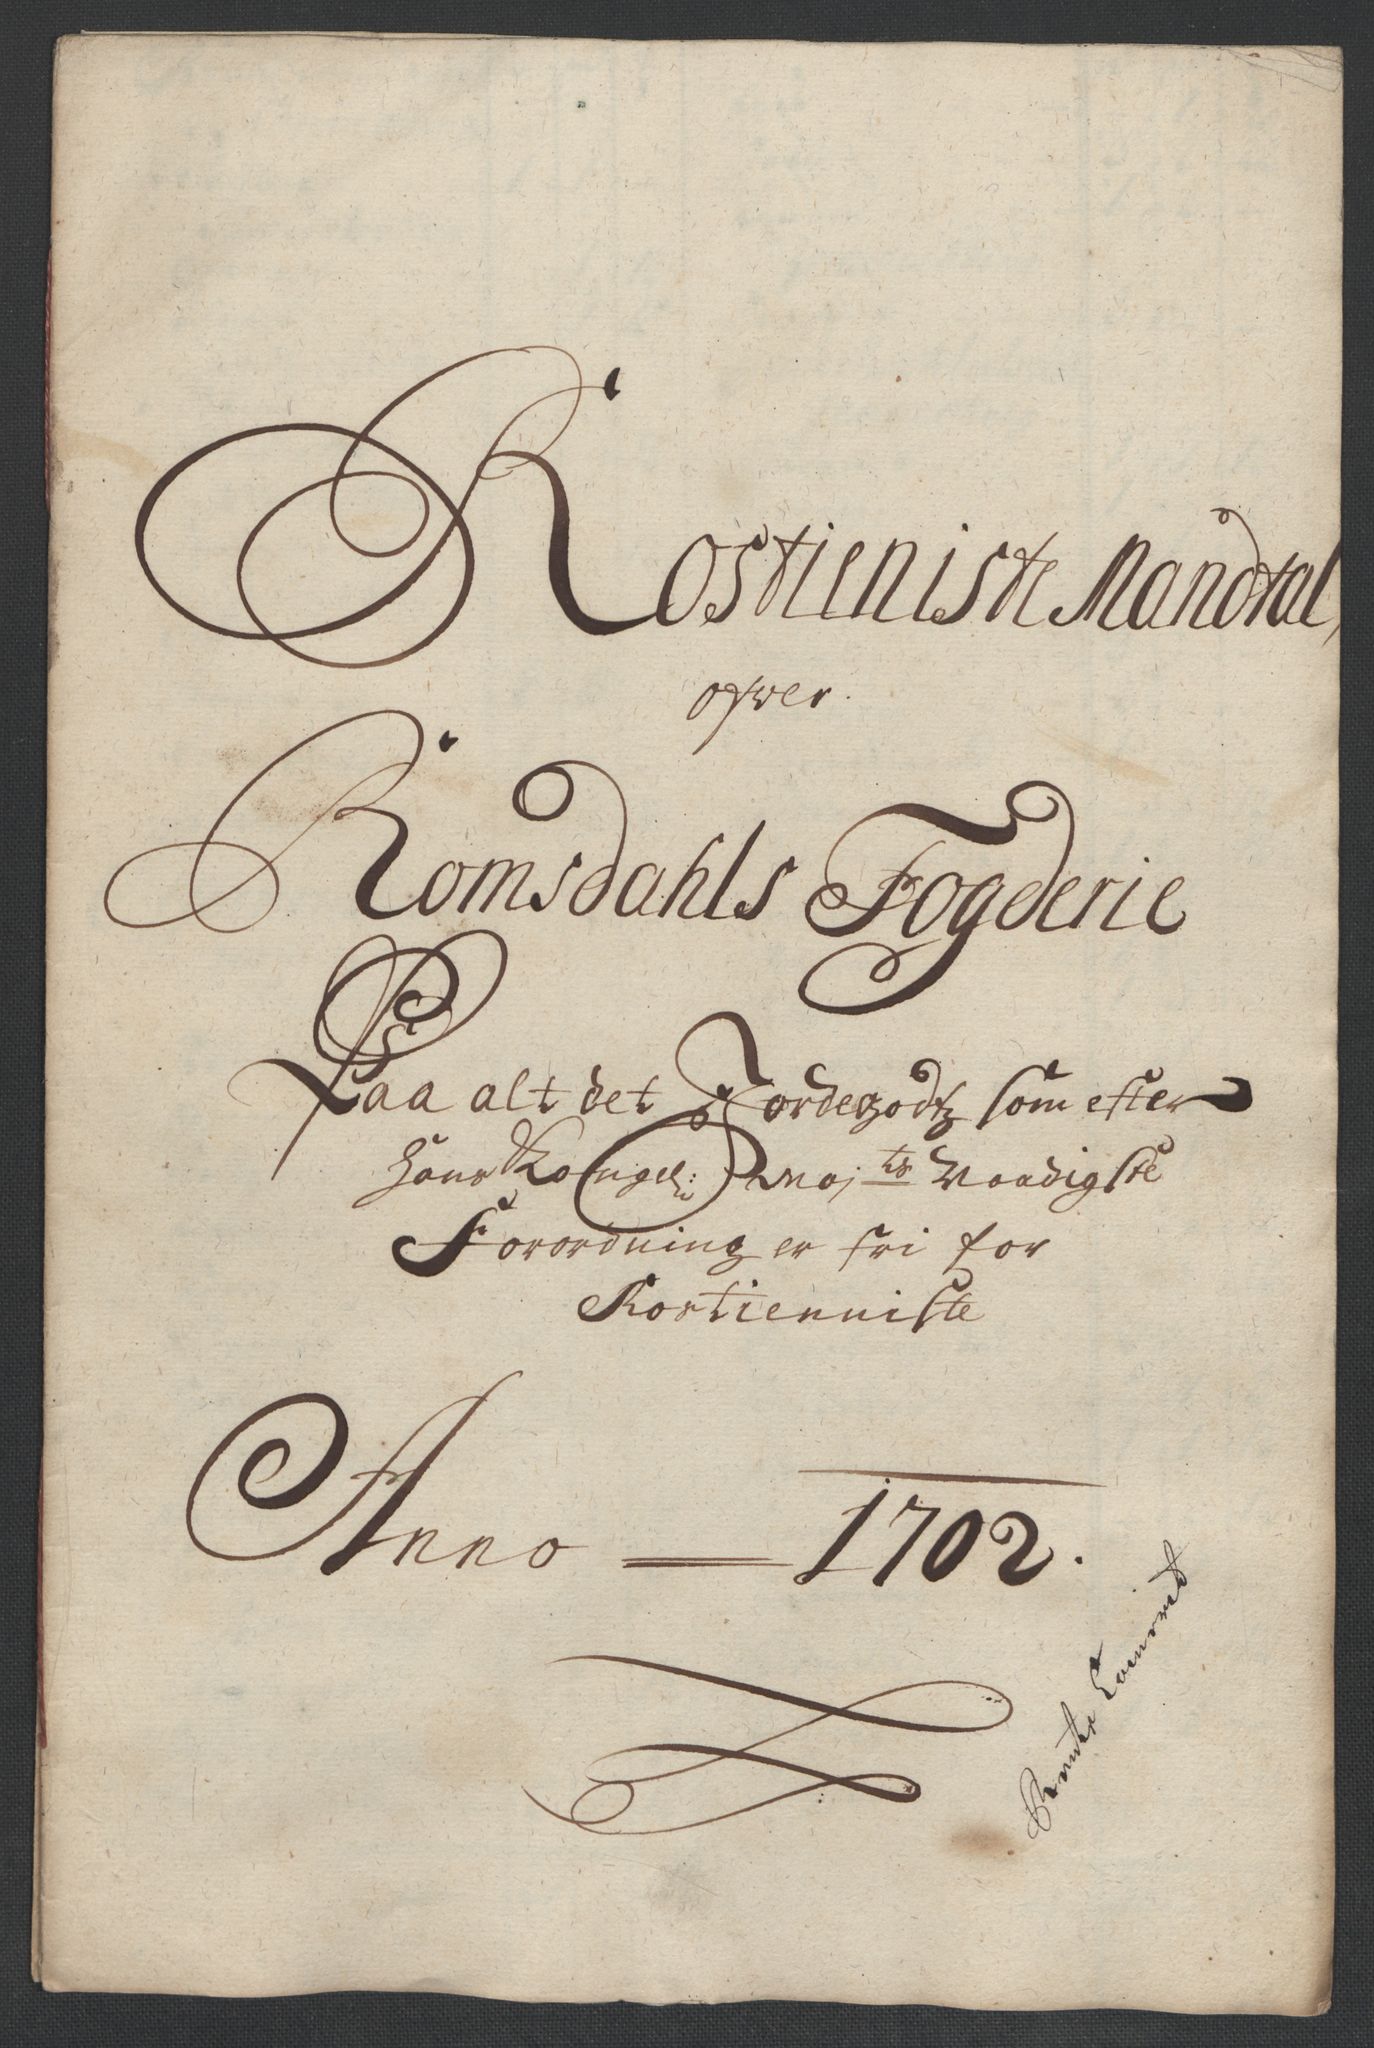 Rostieniste Mandtal,
ofver
Romsdahls Fogderie
Paa alt det Jordegodtz som efter
Hans Kongel: Maj:ts Naadigste
Forordning er fri for
Rostienniste
Anno 1702.